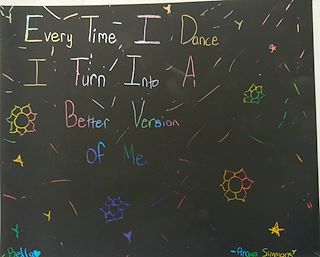 Every Time I Dance
I Turn Into A
Better Version
Of Me
Bella
Simmons